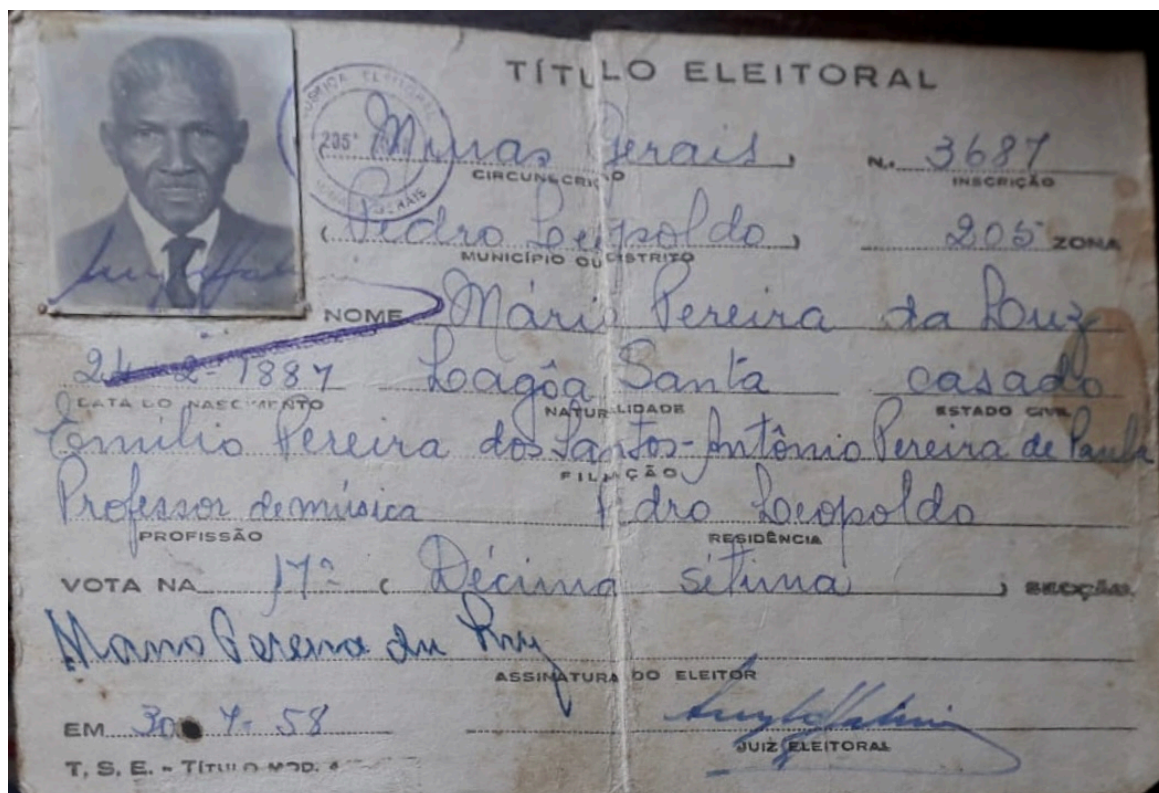 TÍTULO ELEITORAL
JUSTIÇA ELEITORAL
205ª ZONA
MINAS GERAIS
Minas Gerais, N. 3687
CIRCUNSCRIÇÃO INSCRIÇÃO
( Pedro Leopoldo ) 205 ZONA
MUNICÍPIO OU DISTRITO
NOME Mário Pereira da Luz
24-2-1887 Lagôa Santa casado
DATA DO NASCIMENTO NATURALIDADE ESTADO CIVIL
Emílio Pereira dos Santos-Antônio Pereira de Paula
FILIAÇÃO
Professor de música Pedro Leopoldo
PROFISSÃO RESIDÊNCIA
VOTA NA 17ª ( Décima sétima ) SECÇÃO
Mario Pereira da Luz
ASSINATURA DO ELEITOR
EM 30 7-58
JUIZ ELEITORAL
T. S. E. - TÍTULO MOD.